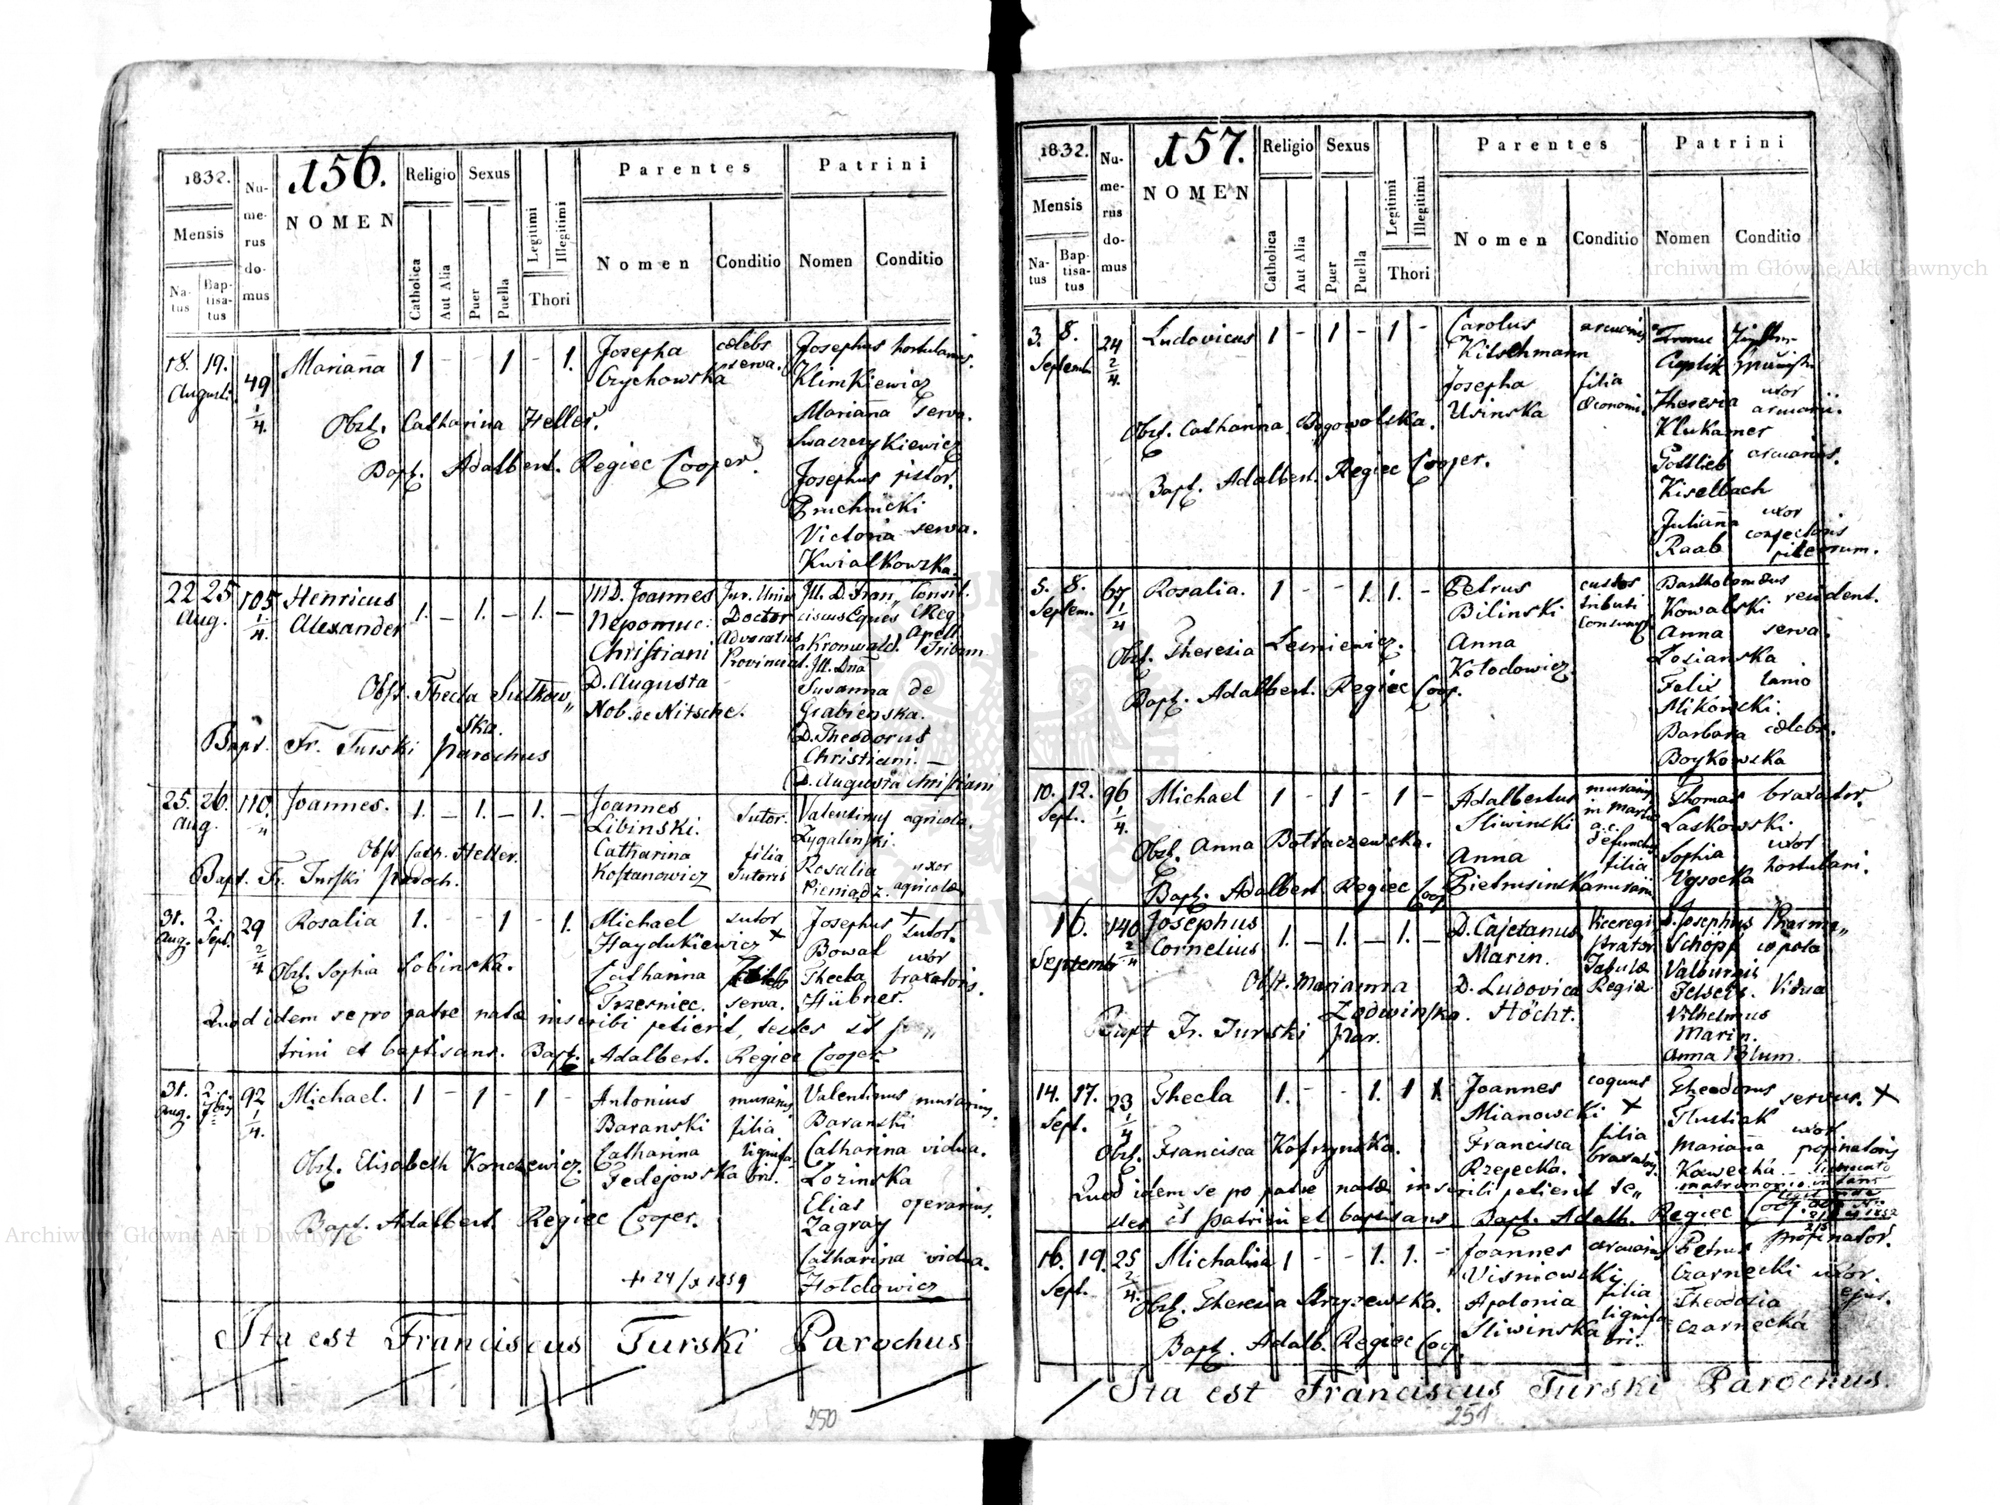 156.
1832.
Mensis
Na-
tus
Bap-
tisa-
tus
Nu-
me-
rus
do-
mus
NOMEN
Religio
Catholica
Aut Alia
Sexus
Puer
Puella
Legitimi
Illegitimi
Thori
Parentes
Nomen
Conditio
Patrini
Nomen
Conditio
18. 19. 49 Marianna 1 - - 1 - 1. Josepha cælebs Josephus hortulanus.
Augusti 1/4. Czychowska serva. Klimkiewicz
Obst. Catharina Heller. Marianna serva.
Bapt. Adalbert. Regiec Cooper.
Josephus pistor.
Pruchnicki
Victoria serva.
Kwiatkowska.
22 25 105 Henricus 1. - 1. - 1. - MD. Joannes Jur. Doctor
Aug. 1/4. Alexander Nepomuc: Advocatus
Christiani Provincial.
D. Augusta
Nob. de Nitsche.
Obst. Thecla Sulkow„
ska.
Bapt. Fr. Turski parochus
Susanna de
Grabienska.
D. Theodorus
Christiani. -
D. Augusta Christiani
25. 26. 110. Joannes. 1. - 1. - 1. - Joannes Sutor. Valentinus agricola.
Aug. Libinski. Zygalinski.
Obst. Cath. Heller. Catharina filia Rosalia uxor
Bapt. Fr. Turski paroch. Kostanowicz Sutoris Pieniądz. agricolæ
31. 2. 29 Rosalia 1. - - 1 - 1. Michael sutor Josephus + sutor.
Aug. Sept. 2/4 Haydukiewicz + Bowal uxor
Obst. Sophia Sobinska. Catharina Thecla braxatoris.
Trzesniec. serva. Hübner.
Quod idem se pro patre natæ inscribi petierit, testes st pa„
trini et baptisans. Bapt. Adalbert. Regiec Cooper.
31. 2. 92 Michael. 1 - 1 - 1 - Antonius murarius Valentinus murarius.
Aug. 7bris 1/4. Baranski filia Baranski
Catharina lignifa- Catharina vidua.
Obst. Elisabeth Konczewicz. Fedejowska bri. Lozinska
Bapt. Adalbert. Regiec Cooper. Elias operarius.
Zagray
Catharina vidua.
+ 24/x 1859 Hołdowicz
Ita est Franciscus Turski Parochus
250
157.
1832.
Mensis
Na-
tus
Bap-
tisa-
tus
Nu-
me-
rus
do-
mus
NOMEN
Religio
Catholica
Aut Alia
Sexus
Puer
Puella
Legitimi
Illegitimi
Thori
Parentes
Nomen
Conditio
Patrini
Nomen
Conditio
3. 8. 24 Ludovicus 1 - 1 - 1 - Carolus arcuarius
Septemb. 2/4. Kitschmann
Josepha filia Theresia uxor
Usinska œconomi. Klukamer arcuarii.
Obst. Catharina Bogowolska. Gottlieb arcuarius.
Bapt. Adalbert. Regiec Cooper. Kiselbach
Julianna uxor
Raab confectoris
pileorum.
5. 8. 67 Rosalia. 1 - - 1. 1. - Petrus custos Bartholomæus
Septem. 1/4 Bilinski tributi Kowalski resident.
Anna consumpt. Anna serva.
Obst. Theresia Lesniewicz. Kołodowicz. Losianska
Bapt. Adalbert. Regiec Coop. Felix lanio
Mikonicki.
Barbara cælebs.
Boykowska
10. 12. 96 Michael 1 - 1 - 1 - Adalbertus murarius Thomas braxator.
Sept. 1/4. Sliwinski Laskowski.
Anna filia Sophia uxor
Obst. Anna Boltaczewska. Pietrusinska murarii Wysocka hortulani.
Bapt. Adalbert Regiec Coop.
16. 140 Josephus 1. - 1. - 1. - D. Cajetanus Viceregi D. Josephus Pharma„
Septembr. 2/4 Cornelius Marin. strator Schöpf copola
Tabulæ Valburgis
D. Ludovica Regiæ Vidua
Obst. Marianna Höcht. Vilhelmus
Zodwinska. Marin.
Bapt Fr. Turski par. Anna Blum.
14. 17. 23 Thecla 1. - - 1. 1 1. Joannes coquus Theodorus servus. +
Sept. 1/4 Mianowski + Tlustiak
Obst. Francisca Kostrzynska. Francisca filia Marianna uxor propinatoris
Rzepecka. braxatoris Kawecka
Quod idem se pro patre natæ inscribi petierit te„
stes st patrini et baptisans Bapt. Adalb. Regiec Coop.
16. 19. 25 Michalina 1 - - 1. 1. - Joannes arcuarius Petrus propinator.
Sept. 2/4. Visniowski Czarnecki uxor
Obst. Theresia Strzyzewska. Apolonia filia Theodosia ejus.
Bapt. Adalb. Regiec Coop. Sliwinska lignifa- Czarnecka
bri.
Ita est Franciscus Turski Parochus.
251
Archiwum Główne Akt Dawnych
Archiwum Główne Akt Dawnych